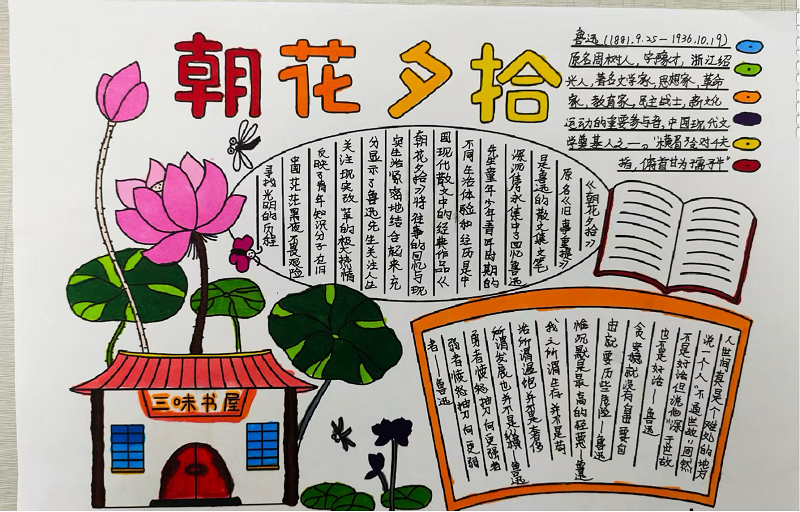 朝花夕拾
鲁迅(1881.9.25-1936.10.19)
原名周树人,字豫才,浙江绍
兴人,著名文学家,思想家,革命
家,教育家,民主战士,新文化
运动的重要参与者,中国现代文
学奠基人之一。"横眉冷对千夫
指,俯首甘为孺子牛"
《朝花夕拾》
原名《旧事重提》
是鲁迅的散文集文笔
深沉隽永集中了回忆鲁迅
先生童年少年青年时期的
不同生活体验和经历是中
国现代散文中的经典作品《
朝花夕拾》将往事的回忆与现
实生活紧密地结合起来充
分显示了鲁迅先生关注人生
关注现实改革的极大热情
反映了青年知识分子在旧
中国茫茫黑夜不畏艰险
寻找光明的历程
三味书屋
人世间真是个难处的地方
说一个人"不通世故"固然
不是好话但说他"深于世故
也不是好话——鲁迅
贪安稳就没有自由要自
由就要历些危险——鲁迅
惟沉默是最高的轻蔑——鲁迅
我之所谓生存并不是苟
活所谓温饱并不是奢侈
所谓发展也并不是放纵——鲁迅
勇者愤怒抽刃向更强者
弱者愤怒抽刃向更弱
者——鲁迅